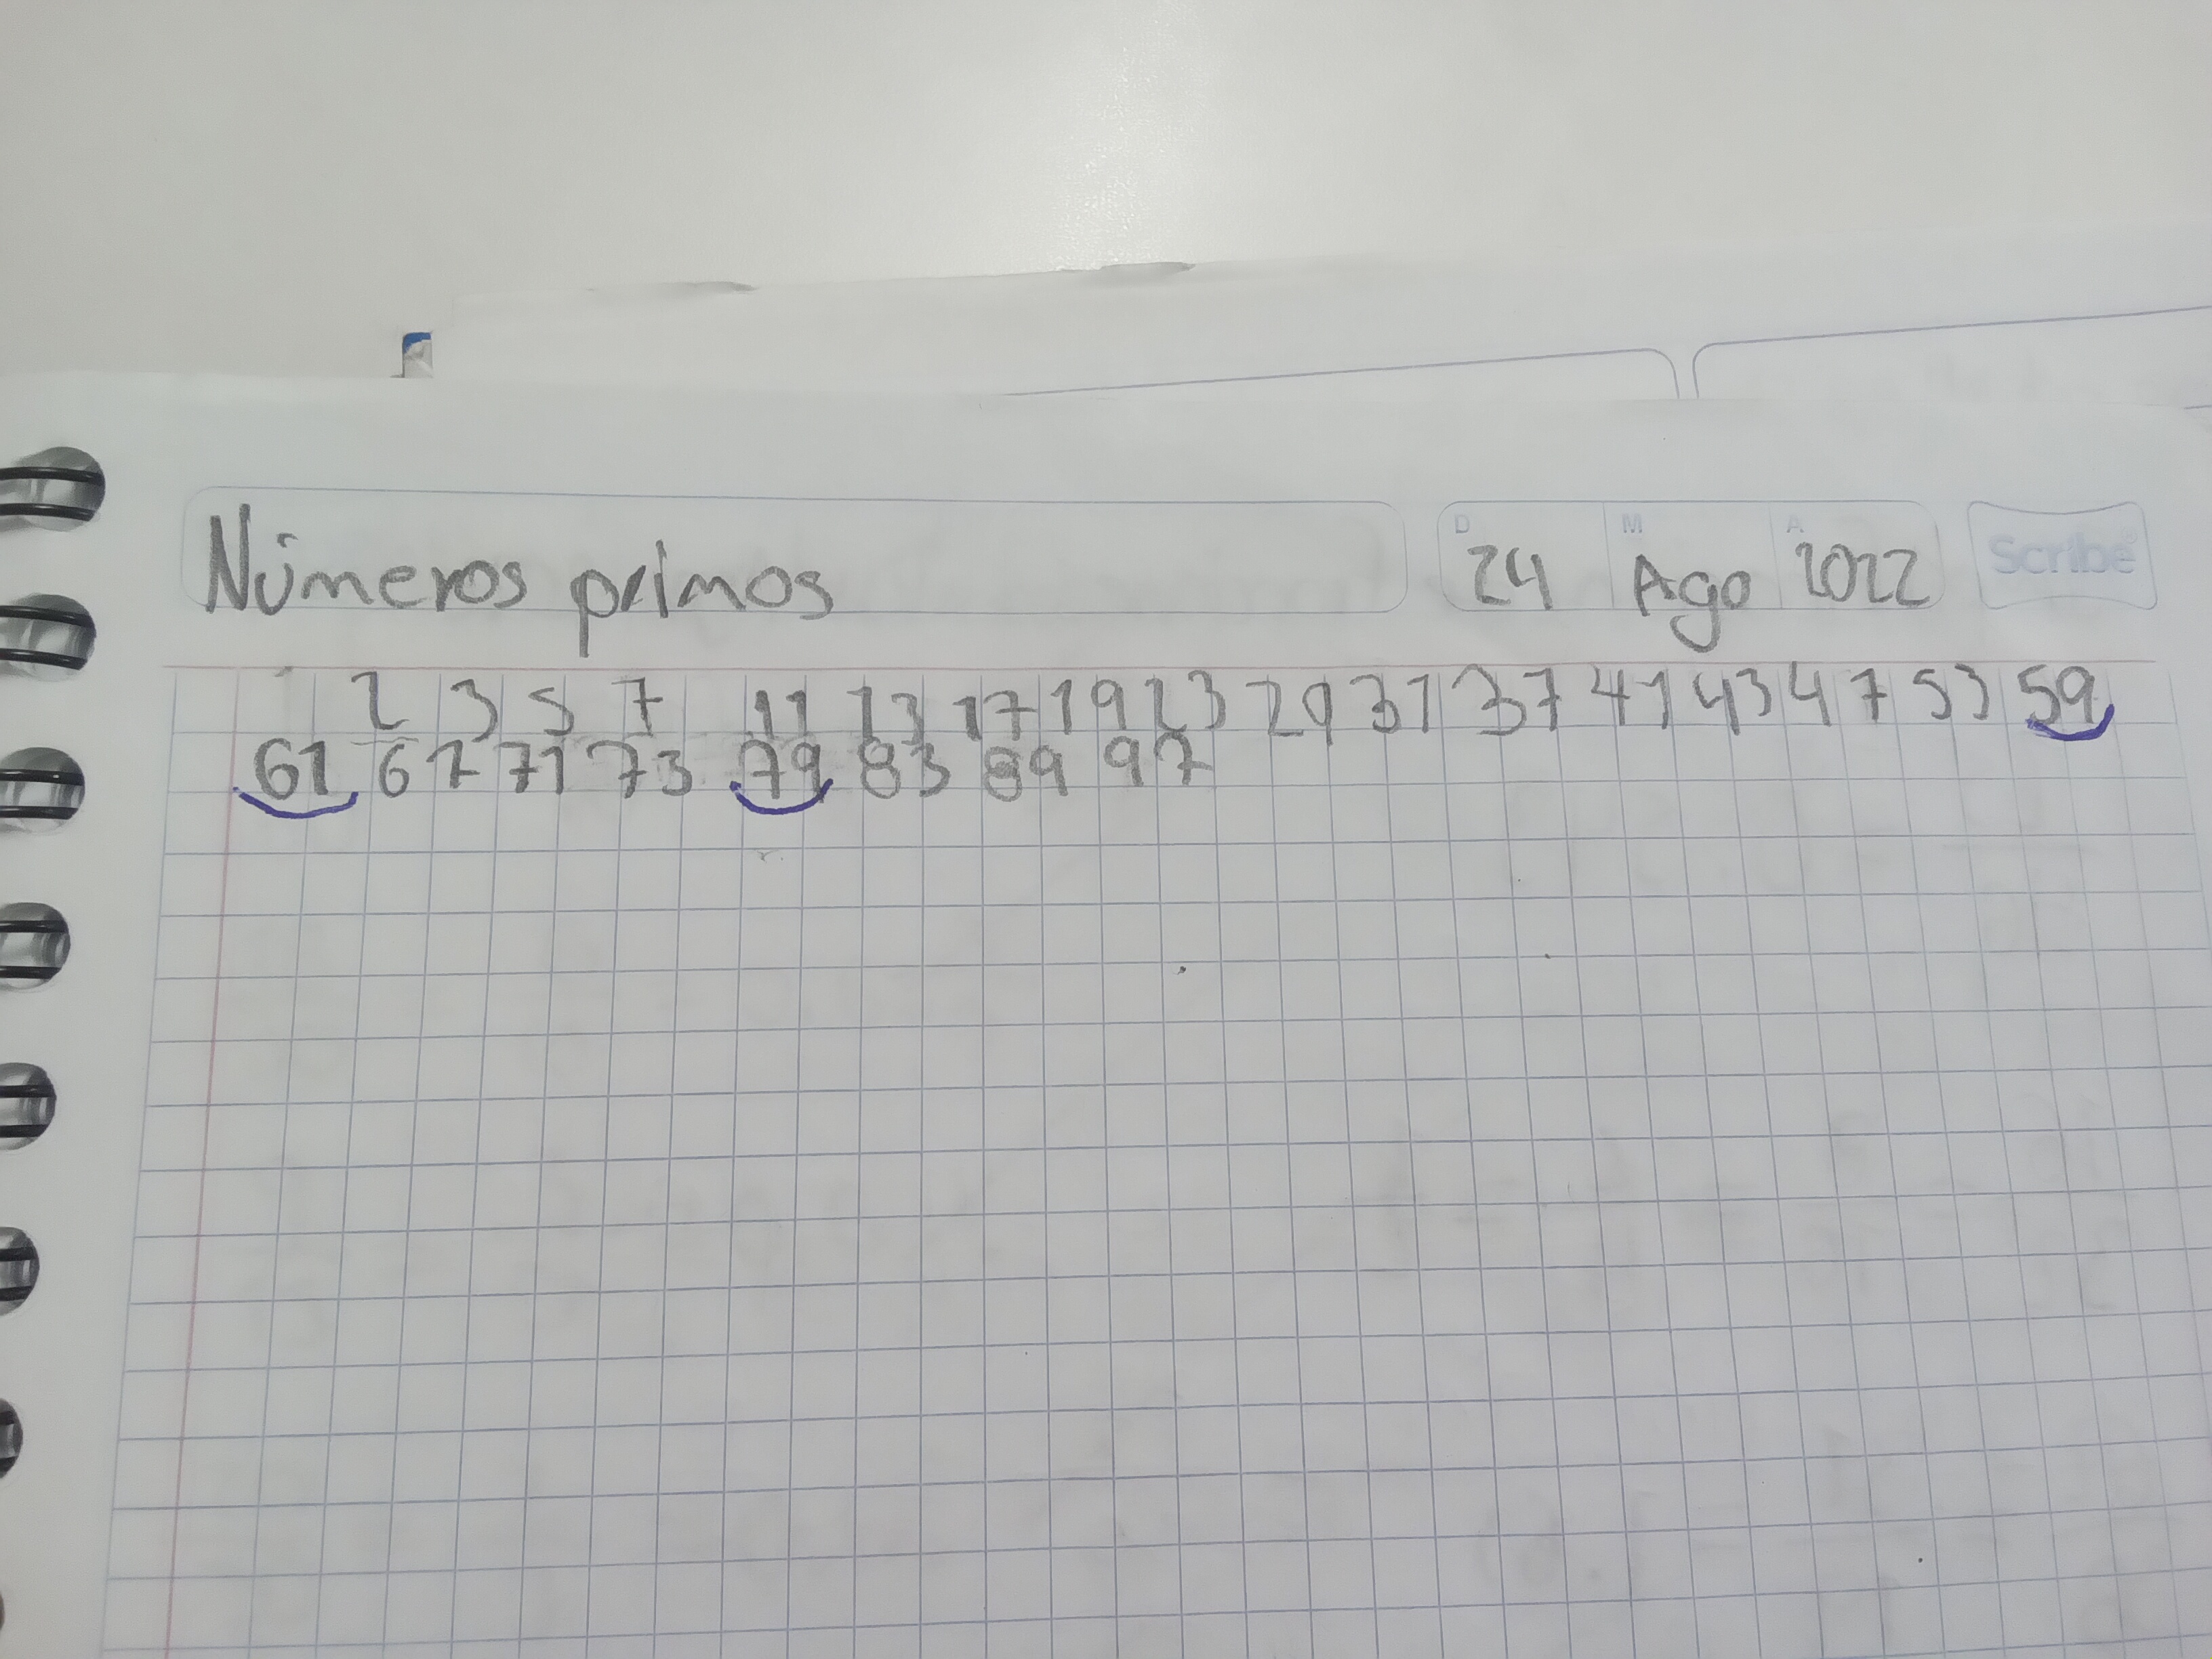 Números primos
D 24 M Ago A 2022 Scribe
2 3 5 7 11 13 17 19 23 29 31 37 41 43 47 53 59
61 67 71 73 79 83 89 97